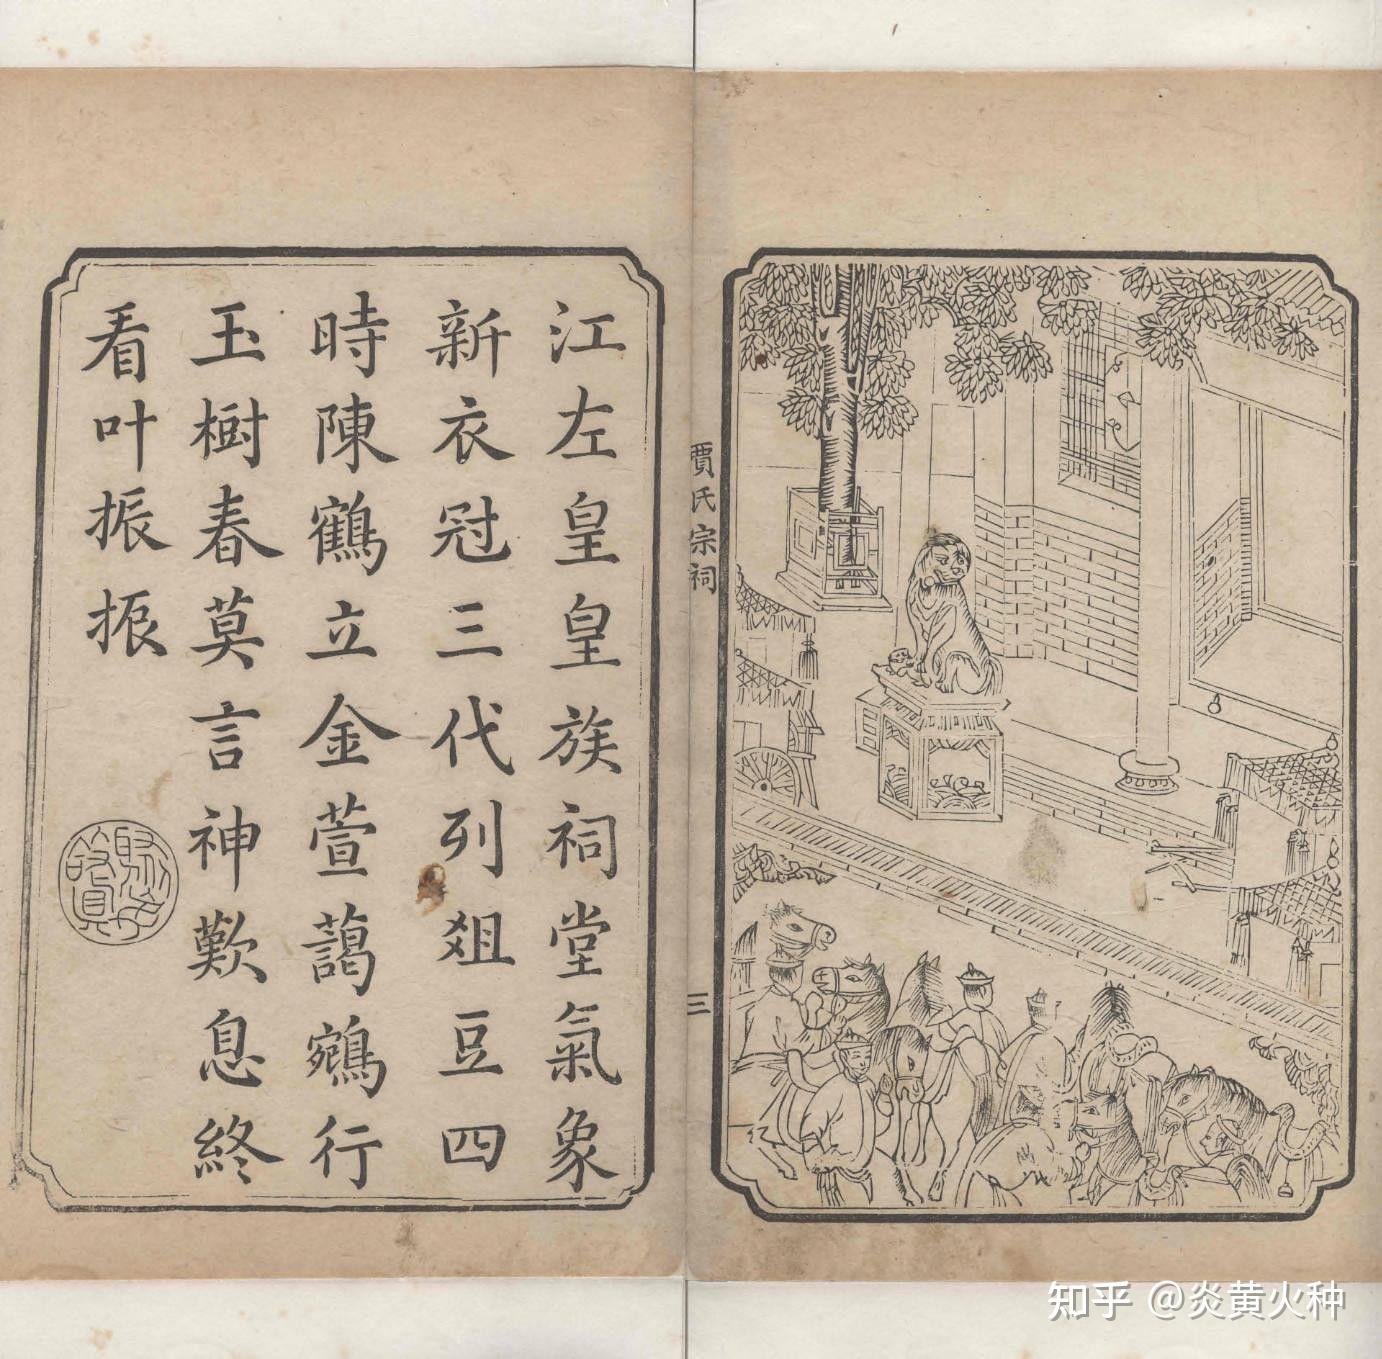 賈氏宗祠
三
江左皇皇族祠堂氣象
新衣冠三代列爼豆四
時陳鶴立金萱藹鵷行
玉樹春莫言神歎息終
看叶振振
知乎 @炎黄火种